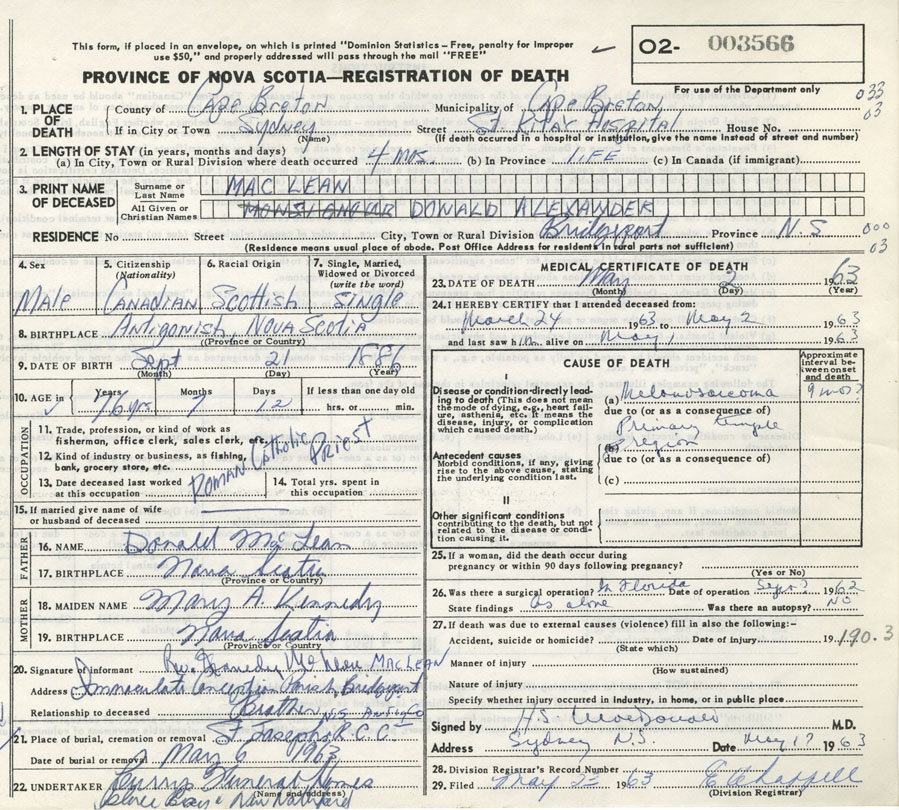 This form, if placed in an envelope, on which is printed "Dominion Statistics – Free, penalty for improper
use $50," and properly addressed will pass through the mail "FREE"
O2- 003566
PROVINCE OF NOVA SCOTIA—REGISTRATION OF DEATH
For use of the Department only
033
03
1. PLACE OF DEATH
County of Cape Breton Municipality of Cape Breton
If in City or Town Sydney Street St Ritas Hospital House No.
(Name) (If death occurred in a hospital or institution, give the name instead of street and number)
2. LENGTH OF STAY (in years, months and days)
(a) In City, Town or Rural Division where death occurred 4 mos. (b) In Province LIFE (c) In Canada (if immigrant)
3. PRINT NAME OF DECEASED
Surname or Last Name MAC LEAN
All Given or Christian Names DONALD ALEXANDER
RESIDENCE No Street City, Town or Rural Division Bridgeport Province N.S
000
03
(Residence means usual place of abode. Post Office Address for residents in rural parts not sufficient)
4. Sex Male
5. Citizenship (Nationality) CANADIAN
6. Racial Origin Scottish
7. Single, Married, Widowed or Divorced (write the word) Single
8. BIRTHPLACE Antigonish, NOVA SCOTIA
(Province or Country)
9. DATE OF BIRTH Sept 21 1886
(Month) (Day) (Year)
10. AGE in Years 76 yrs Months 7 Days 12 If less than one day old
hrs. or min.
OCCUPATION
11. Trade, profession, or kind of work as
fisherman, office clerk, sales clerk, etc.
12. Kind of industry or business, as fishing,
bank, grocery store, etc.
ROMAN Catholic Priest
13. Date deceased last worked
at this occupation
14. Total yrs. spent in
this occupation
15. If married give name of wife
or husband of deceased
FATHER
16. NAME Donald McLean
17. BIRTHPLACE Nova Scotia
(Province or Country)
MOTHER
18. MAIDEN NAME Mary A. Kennedy
19. BIRTHPLACE Nova Scotia
(Province or Country)
20. Signature of informant Rev. MACLEAN
Address Immaculate Conception Parish, Bridgeport
Relationship to deceased Brother N.S.
21. Place of burial, cremation or removal St Josephs R.C.C.
Date of burial or removal May 6 1963
22. UNDERTAKER Funeral Homes
(Name and address)
Glace Bay & New Waterford
MEDICAL CERTIFICATE OF DEATH
23. DATE OF DEATH May 2 1963
(Month) (Day) (Year)
24. I HEREBY CERTIFY that I attended deceased from:
March 24 1963 to May 2 1963
and last saw him alive on May 1 1963
CAUSE OF DEATH
Approximate interval between onset and death
I
Disease or condition directly leading
to death (This does not mean
the mode of dying, e.g., heart failure,
asthenia, etc. It means the
disease, injury, or complication
which caused death.)
(a) Melanosarcoma 9 mos?
due to (or as a consequence of)
Primary temple
region
Antecedent causes
Morbid conditions, if any, giving
rise to the above cause, stating
the underlying condition last.
(b)
due to (or as a consequence of)
(c)
II
Other significant conditions
contributing to the death, but not
related to the disease or condition
causing it.
25. If a woman, did the death occur during
pregnancy or within 90 days following pregnancy?
(Yes or No)
26. Was there a surgical operation? In Florida Date of operation Sept? 1962
State findings as above Was there an autopsy? NO
27. If death was due to external causes (violence) fill in also the following:–
Accident, suicide or homicide? Date of injury 19
190.3
(State which)
Manner of injury
(How sustained)
Nature of injury
Specify whether injury occurred in industry, in home, or in public place
Signed by H.S. MacDonald M.D.
Address Sydney N.S. Date May 17 1963
28. Division Registrar's Record Number
29. Filed May 22 1963
(Division Registrar)